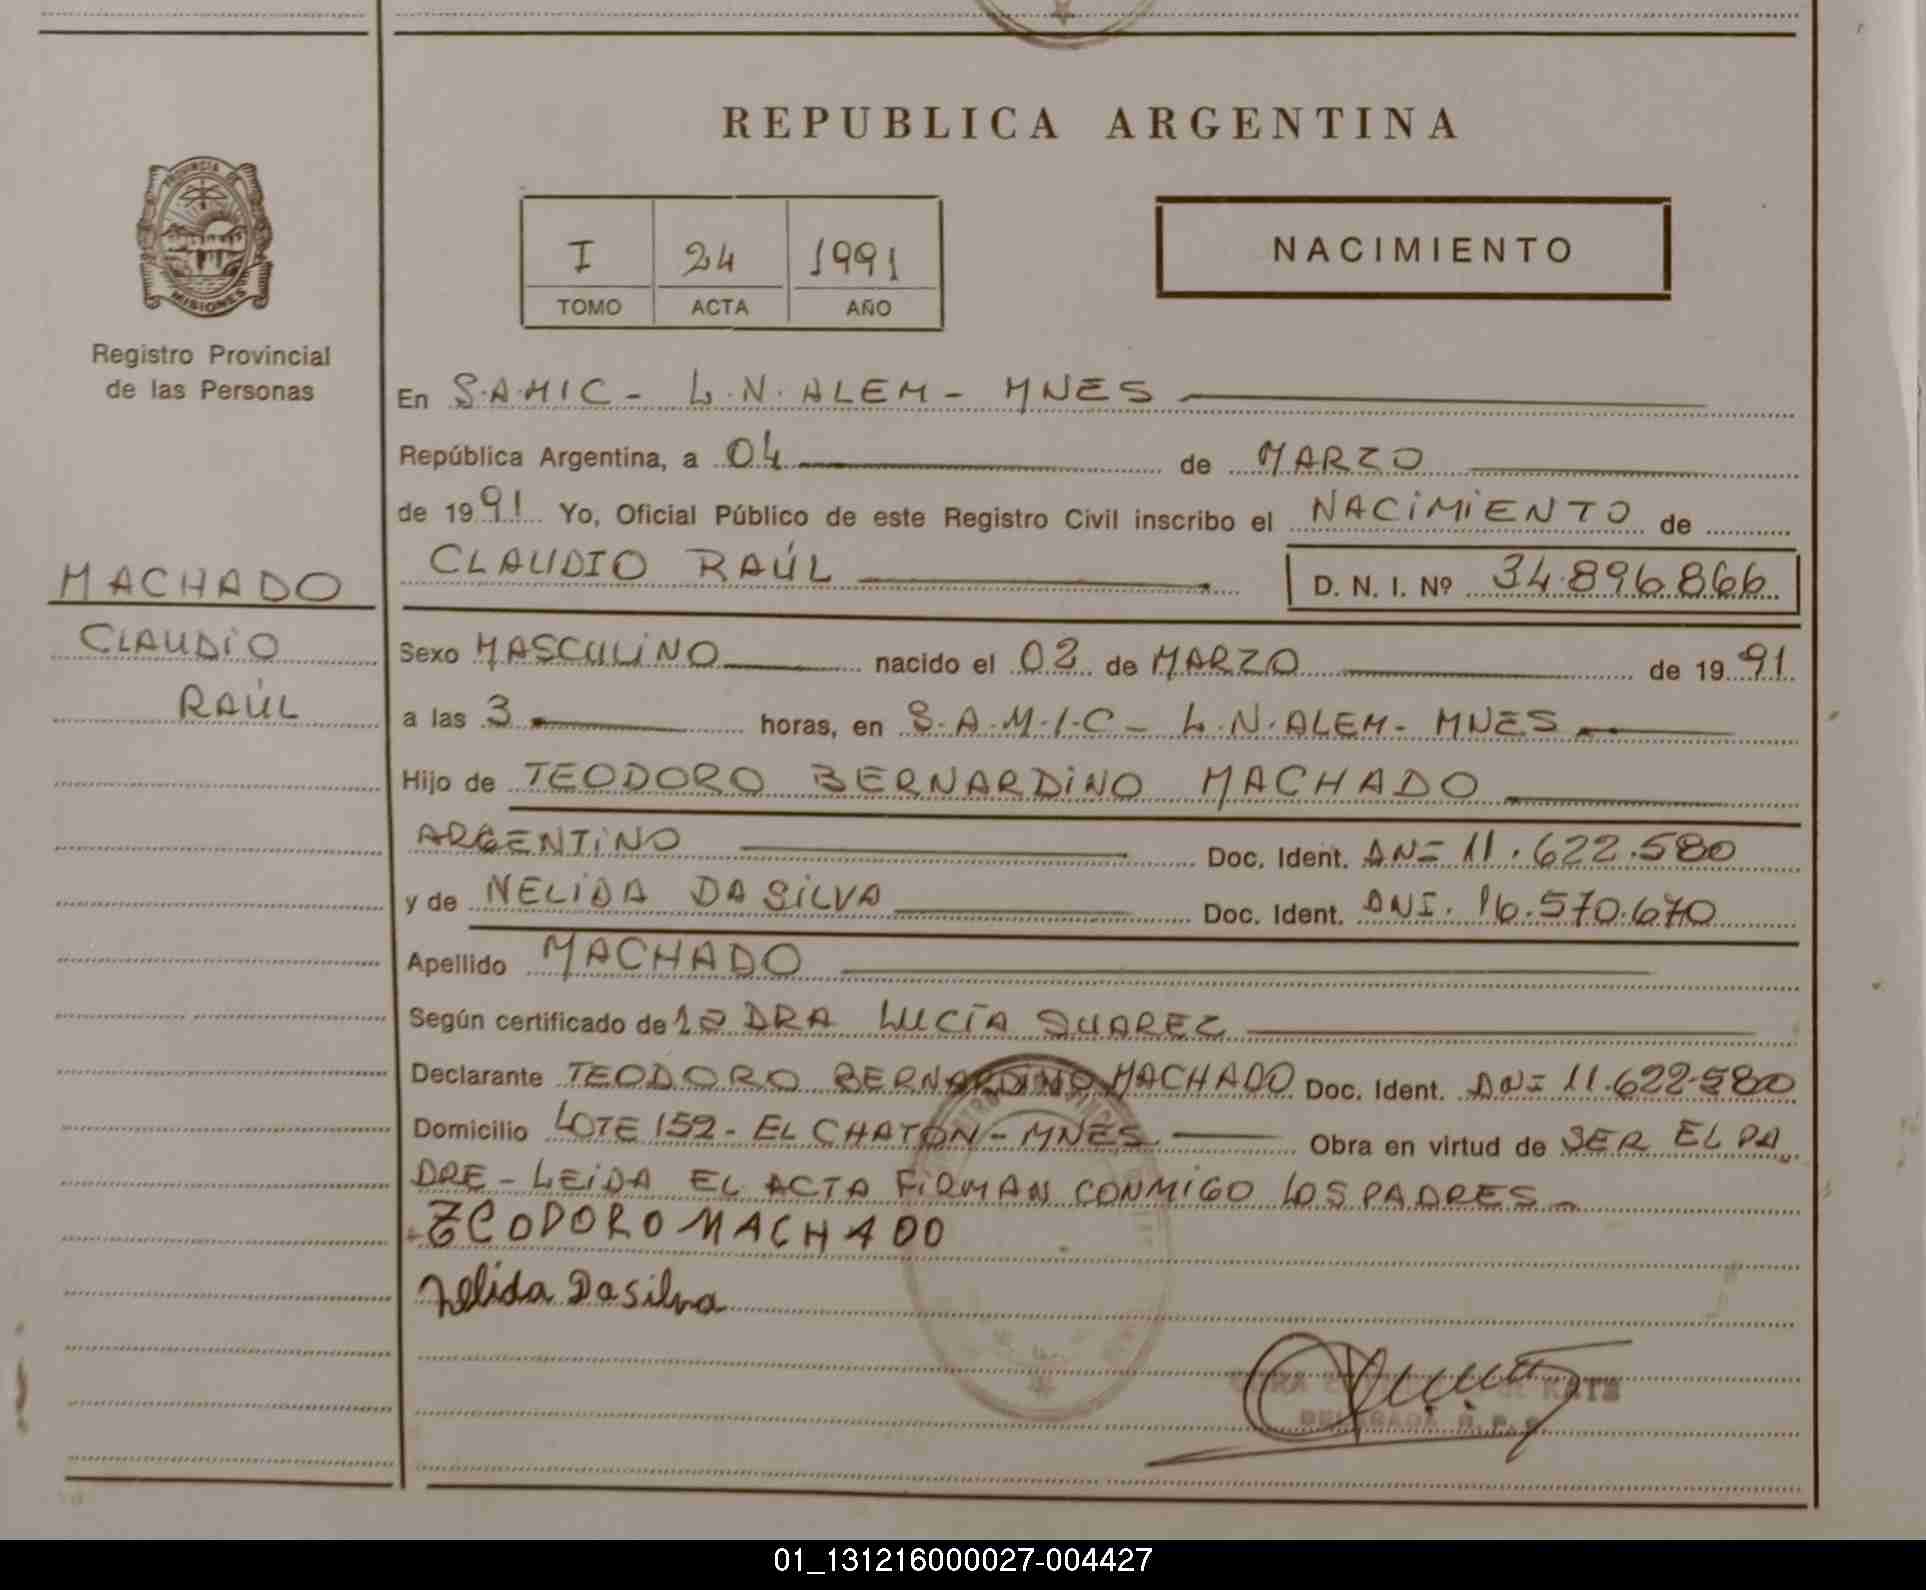 REPUBLICA ARGENTINA
PROVINCIA DE
MISIONES
Registro Provincial
de las Personas
I 24 1991
TOMO ACTA AÑO
NACIMIENTO
En S.A.M.I.C - L.N. ALEM - MNES
República Argentina, a 04 de MARZO
de 1991 Yo, Oficial Público de este Registro Civil inscribo el NACIMIENTO de
CLAUDIO RAÚL D. N. I. Nº 34.896.866
MACHADO
CLAUDIO
RAÚL
Sexo MASCULINO nacido el 02 de MARZO de 1991
a las 3 horas, en S.A.M.I.C - L.N. ALEM - MNES
Hijo de TEODORO BERNARDINO MACHADO
ARGENTINO Doc. Ident. DNI 11.622.580
y de NELIDA DA SILVA Doc. Ident. DNI. 16.570.670
Apellido MACHADO
Según certificado de la DRA LUCÍA SUAREZ
Declarante TEODORO BERNARDINO MACHADO Doc. Ident. DNI 11.622.580
Domicilio LOTE 152 - EL CHATON - MNES Obra en virtud de SER EL PA
DRE - LEIDA EL ACTA FIRMAN CONMIGO LOS PADRES
TEODORO MACHADO
Nelida Da silva
DELEGADA R.P.P.
01_131216000027-004427